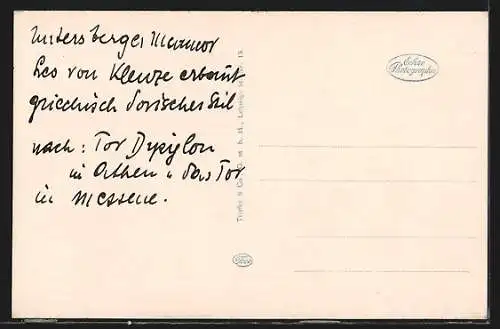 Untersberger Marmor
Leo von Klenze erbaut
griechisch dorischer Stil
nach: Tor Dypilon
in Athen u das Tor
in Messene.
Echte
Photographie
Trinks & Co., G. m. b. H., Leipzig